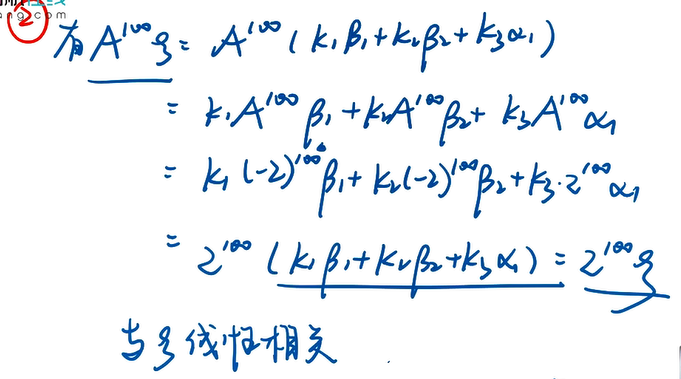 ②
ang.com
有 A¹⁰⁰ξ = A¹⁰⁰(k₁β₁+k₂β₂+k₃α₁)
= k₁A¹⁰⁰β₁+k₂A¹⁰⁰β₂+k₃A¹⁰⁰α₁
= k₁(-2)¹⁰⁰β₁+k₂(-2)¹⁰⁰β₂+k₃·2¹⁰⁰α₁
= 2¹⁰⁰(k₁β₁+k₂β₂+k₃α₁) = 2¹⁰⁰ξ
与ξ线性相关